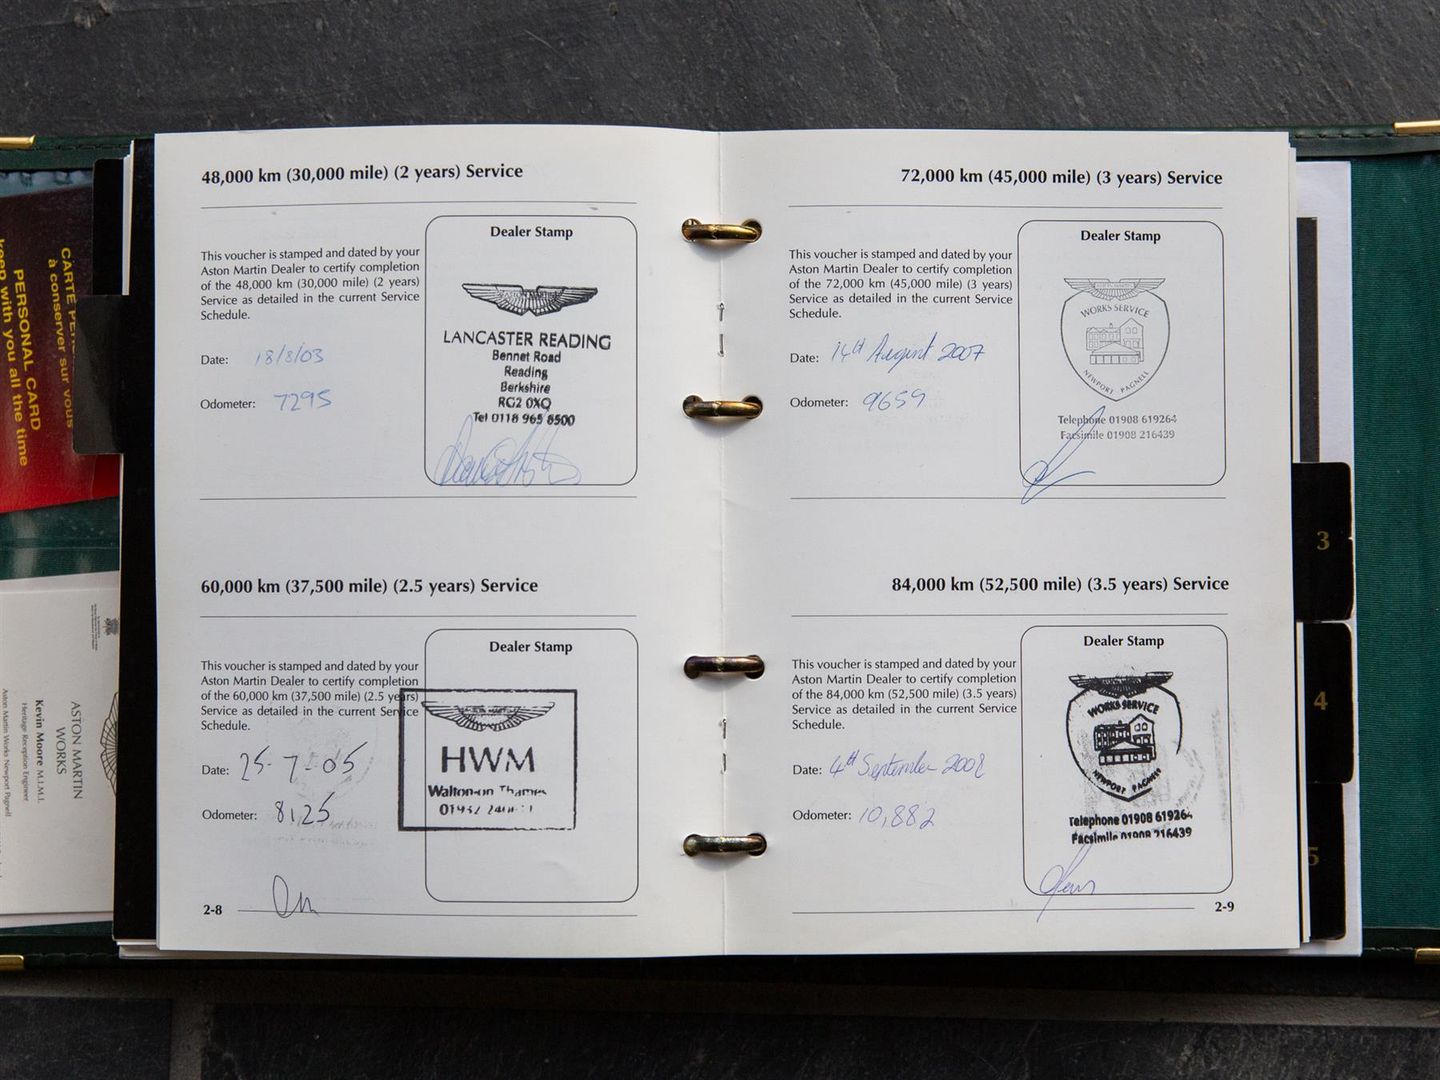 48,000 km (30,000 mile) (2 years) Service
This voucher is stamped and dated by your
Aston Martin Dealer to certify completion
of the 48,000 km (30,000 mile) (2 years)
Service as detailed in the current Service
Schedule.
Date: 18/8/03
Odometer: 7295
Dealer Stamp
LANCASTER READING
Bennet Road
Reading
Berkshire
RG2 0XQ
Tel 0118 965 8500
60,000 km (37,500 mile) (2.5 years) Service
This voucher is stamped and dated by your
Aston Martin Dealer to certify completion
of the 60,000 km (37,500 mile) (2.5 years)
Service as detailed in the current Service
Schedule.
Date: 25-7-05
Odometer: 8125
Dealer Stamp
HWM
Walton-on Thames
2-8
72,000 km (45,000 mile) (3 years) Service
This voucher is stamped and dated by your
Aston Martin Dealer to certify completion
of the 72,000 km (45,000 mile) (3 years)
Service as detailed in the current Service
Schedule.
Date: 14th August 2007
Odometer: 9659
Dealer Stamp
WORKS SERVICE
NEWPORT PAGNELL
Telephone 01908 619264
Facsimile 01908 216439
84,000 km (52,500 mile) (3.5 years) Service
This voucher is stamped and dated by your
Aston Martin Dealer to certify completion
of the 84,000 km (52,500 mile) (3.5 years)
Service as detailed in the current Service
Schedule.
Date: 4th September 2008
Odometer: 10,882
Dealer Stamp
WORKS SERVICE
NEWPORT PAGNELL
Telephone 01908 619264
Facsimile 01908 216439
2-9
3
4
5
à conserver sur vous
PERSONAL CARD
keep with you all the time
ASTON MARTIN
WORKS
Kevin Moore M.I.M.I.
Heritage Reception Engineer
Aston Martin Works Newport Pagnell